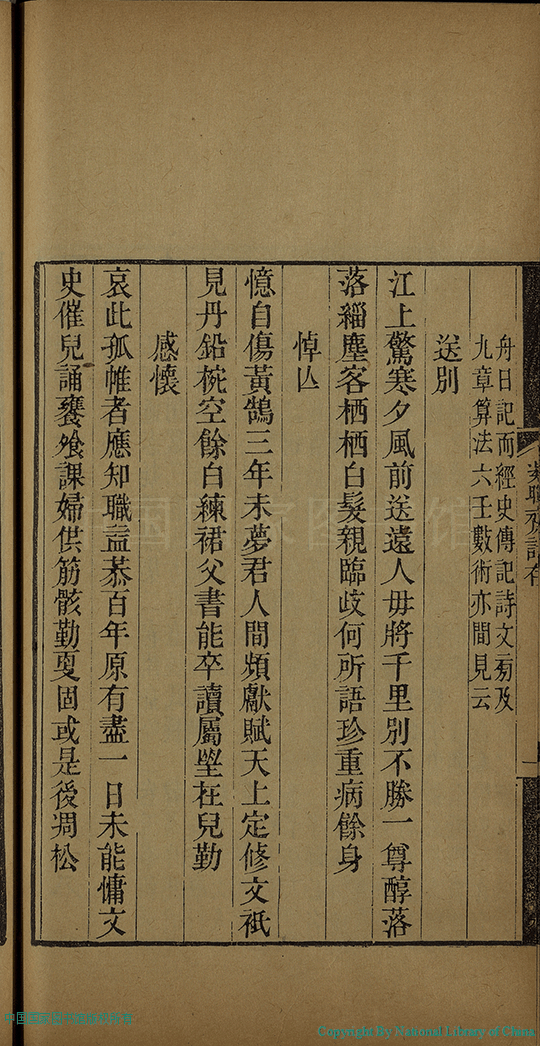 舟日記而經史傳記詩文㫄及
九章算法六壬數術亦間見云
送別
江上驚寒夕風前送遠人毋將千里別不勝一尊醇落
落緇塵客栖栖白髮親臨歧何所語珍重病餘身
悼亾
憶自傷黃鵠三年未夢君人間頻獻賦天上定修文祇
見丹鉛椀空餘白練裙父書能卒讀屬望在兒勤
感懷
哀此孤帷者應知職盆恭百年原有盡一日未能慵文
史催兒誦饔飱課婦供筋骸勤㪅固或是後凋松
Copyright By National Library of China